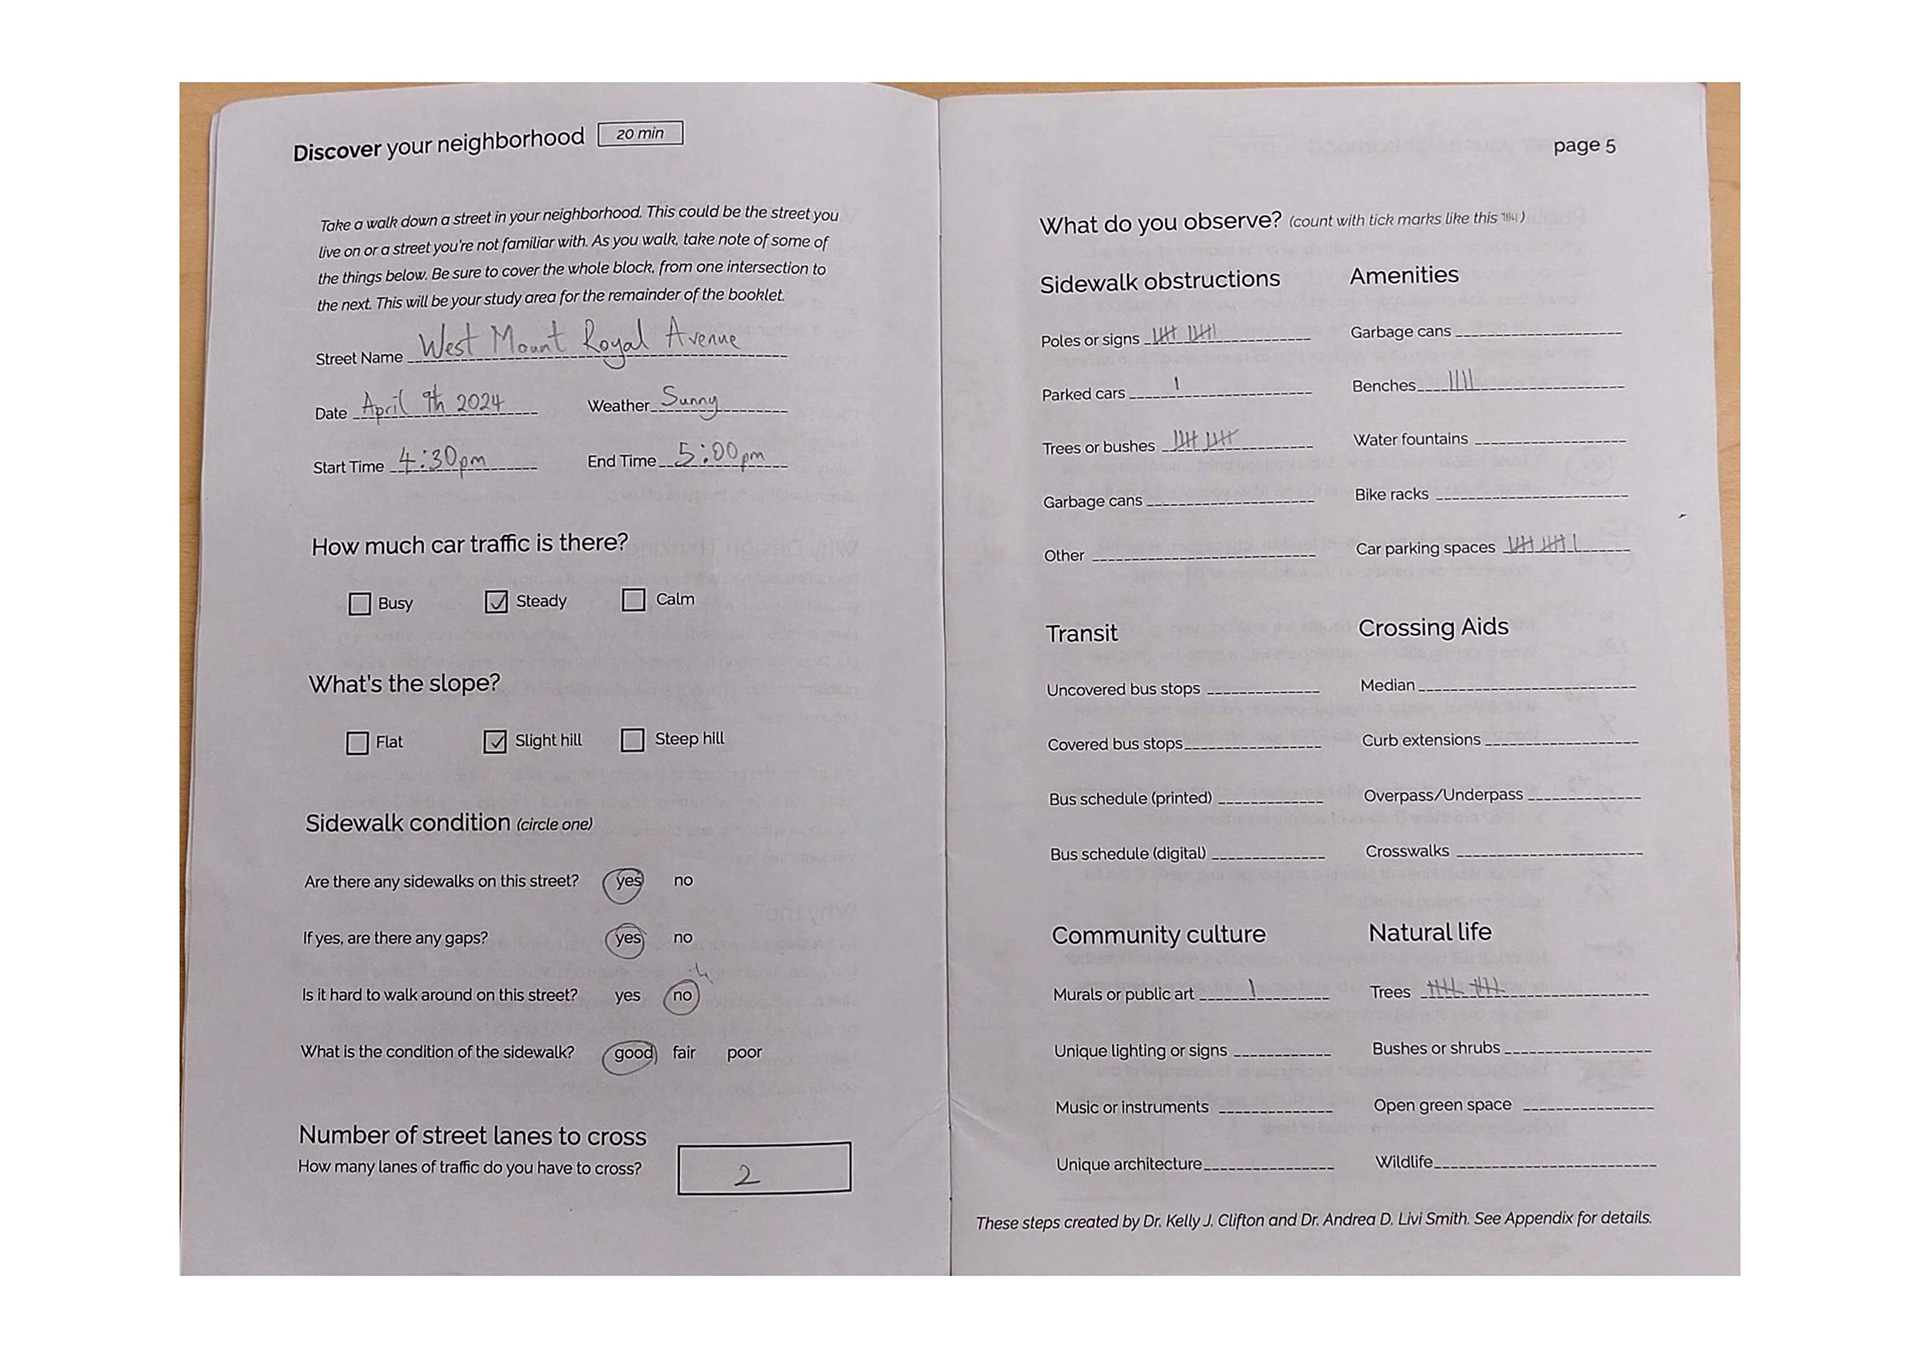 Discover your neighborhood 20 min
Take a walk down a street in your neighborhood. This could be the street you
live on or a street you're not familiar with. As you walk, take note of some of
the things below. Be sure to cover the whole block, from one intersection to
the next. This will be your study area for the remainder of the booklet.
Street Name West Mount Royal Avenue
Date April 9th 2024 Weather Sunny
Start Time 4:30pm End Time 5:00pm
How much car traffic is there?
Busy Steady Calm
What's the slope?
Flat Slight hill Steep hill
Sidewalk condition (circle one)
Are there any sidewalks on this street? yes no
If yes, are there any gaps? yes no
Is it hard to walk around on this street? yes no
What is the condition of the sidewalk? good fair poor
Number of street lanes to cross
How many lanes of traffic do you have to cross? 2
page 5
What do you observe? (count with tick marks like this )
Sidewalk obstructions
Poles or signs
Parked cars
Trees or bushes
Garbage cans
Other
Amenities
Garbage cans
Benches
Water fountains
Bike racks
Car parking spaces
Transit
Uncovered bus stops
Covered bus stops
Bus schedule (printed)
Bus schedule (digital)
Crossing Aids
Median
Curb extensions
Overpass/Underpass
Crosswalks
Community culture
Murals or public art
Unique lighting or signs
Music or instruments
Unique architecture
Natural life
Trees
Bushes or shrubs
Open green space
Wildlife
These steps created by Dr. Kelly J. Clifton and Dr. Andrea D. Livi Smith. See Appendix for details.